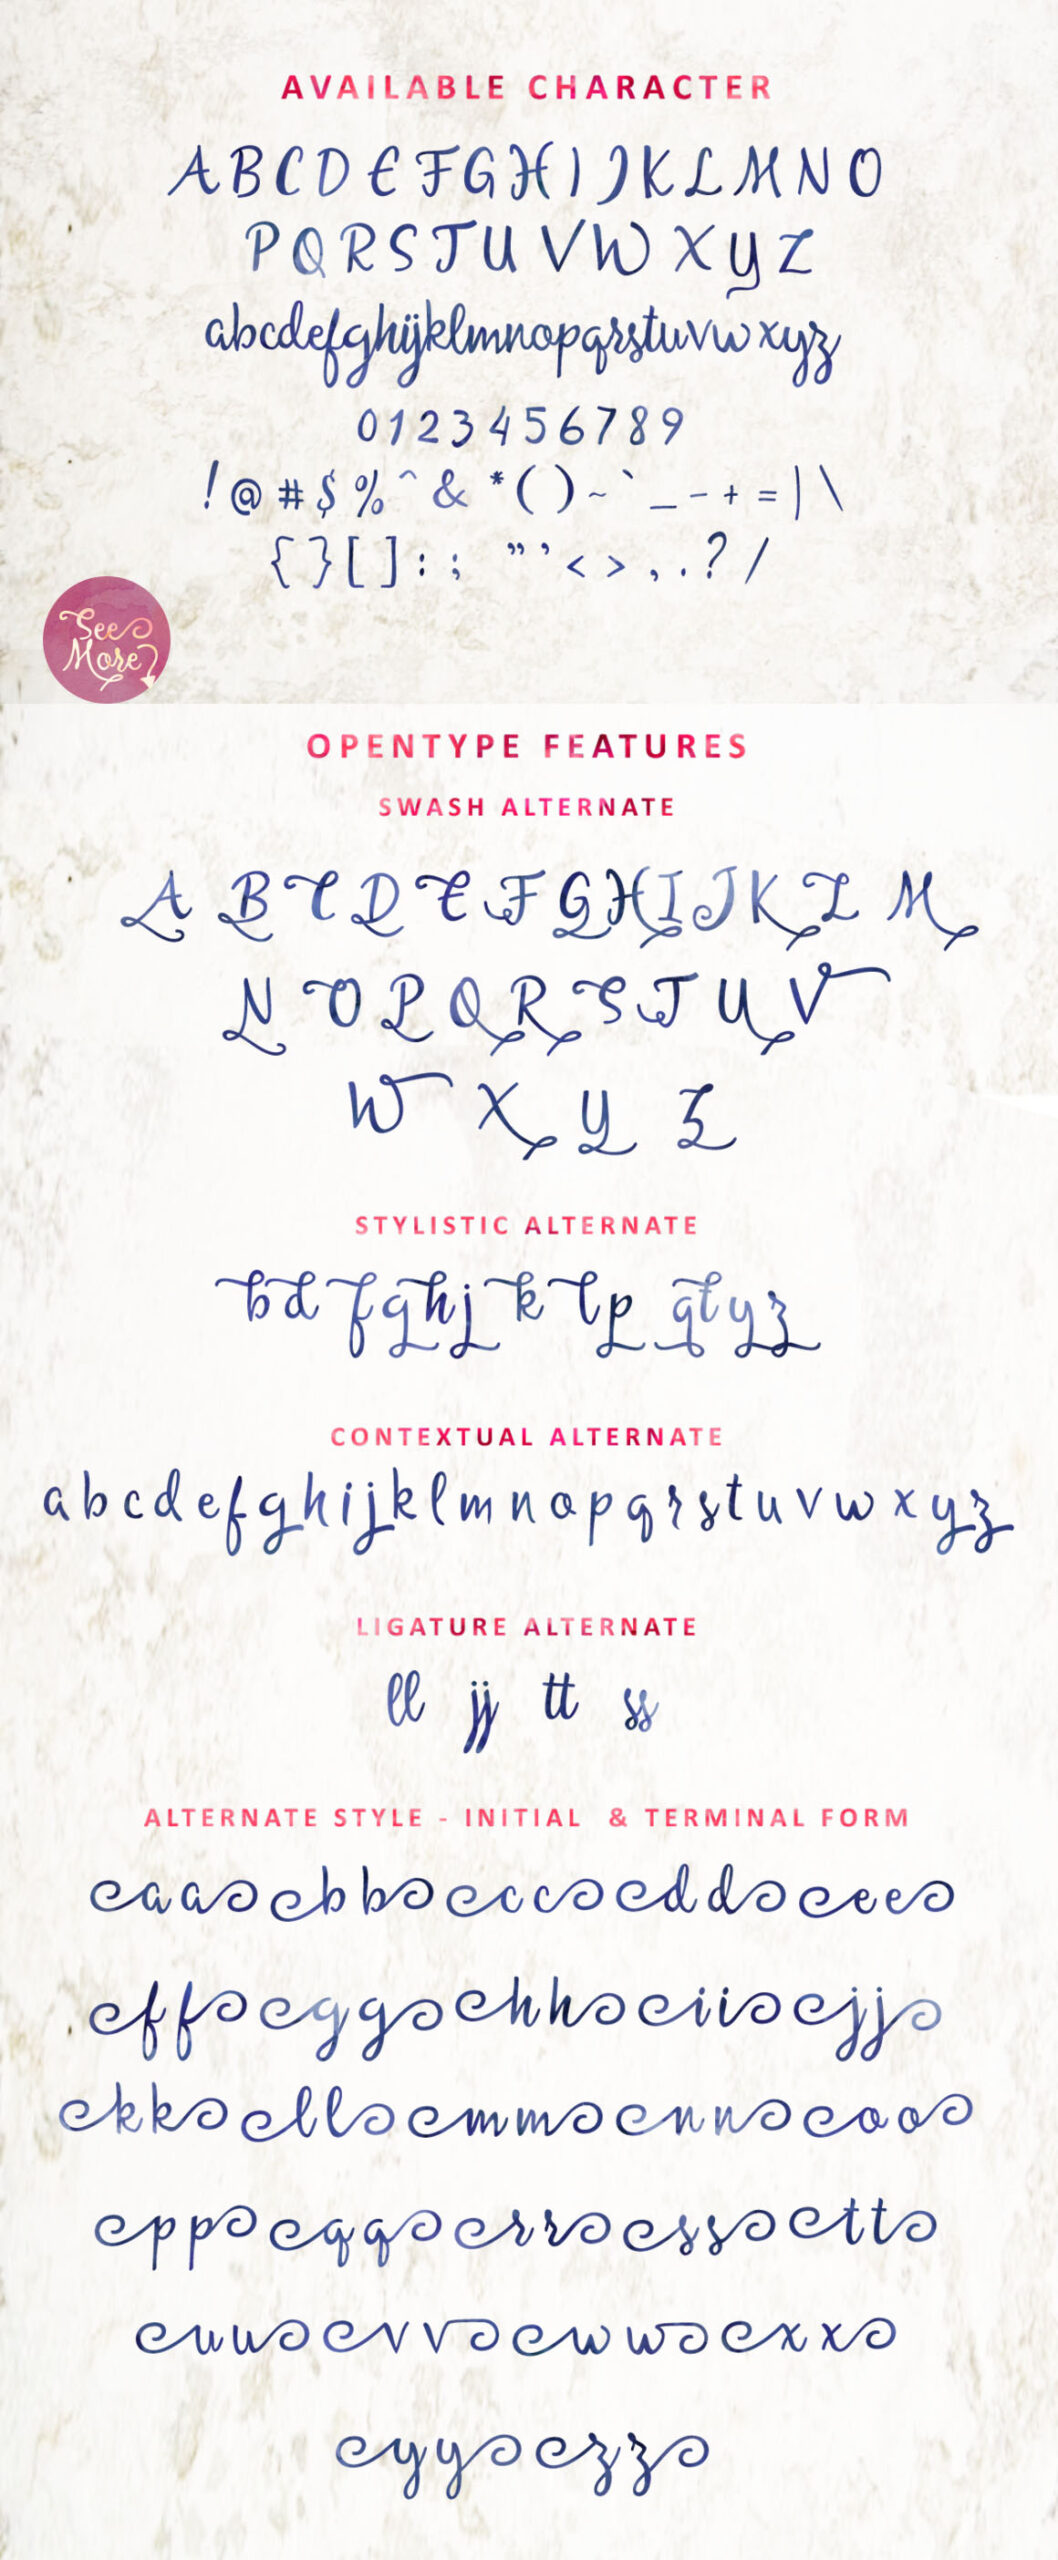 AVAILABLE CHARACTER
A B C D E F G H I J K L M N O
P Q R S T U V W X Y Z
abcdefghijklmnopqrstuvwxyz
0 1 2 3 4 5 6 7 8 9
! @ # $ % ^ & * ( ) ~ ` _ - + = | \
{ } [ ] : ; ” ’ < > , . ? /
See
More
OPENTYPE FEATURES
SWASH ALTERNATE
A B C D E F G H I J K L M
N O P Q R S T U V
W X Y Z
STYLISTIC ALTERNATE
b d f g h j k l p q t y z
CONTEXTUAL ALTERNATE
a b c d e f g h i j k l m n o p q r s t u v w x y z
LIGATURE ALTERNATE
ll jj tt ss
ALTERNATE STYLE - INITIAL & TERMINAL FORM
a a b b c c d d e e
f f g g h h i i j j
k k l l m m n n o o
p p q q r r s s t t
u u v v w w x x
y y z z